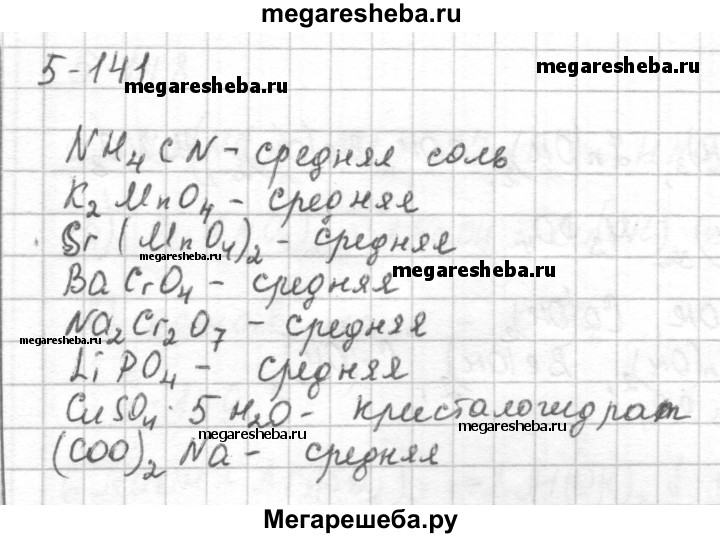 megaresheba.ru
5-141
megaresheba.ru
megaresheba.ru
NH₄CN - средняя соль
K₂MnO₄ - средняя
Sr(MnO₄)₂ - средняя
megaresheba.ru
megaresheba.ru
BaCrO₄ - средняя
Na₂Cr₂O₇ - средняя
megaresheba.ru
LiPO₄ - средняя
CuSO₄·5H₂O - кристалогидрат
megaresheba.ru
megaresheba.ru
(COO)₂Na - средняя
Мегарешеба.ру